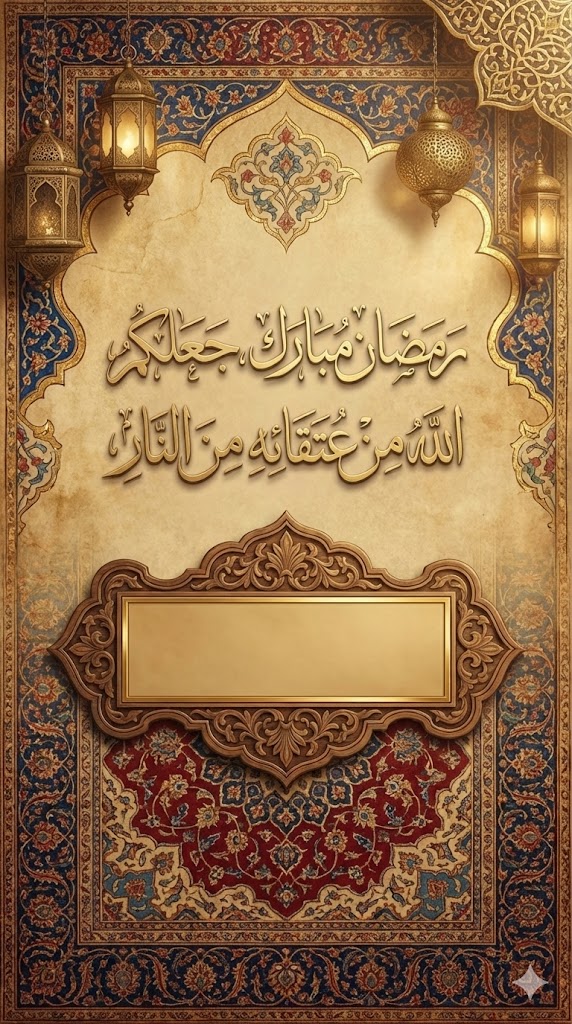 رَمَضَان مُبَارَك، جَعَلَكُمُ
اللَّهُ مِنْ عُتَقَائِهِ مِنَ النَّارِ